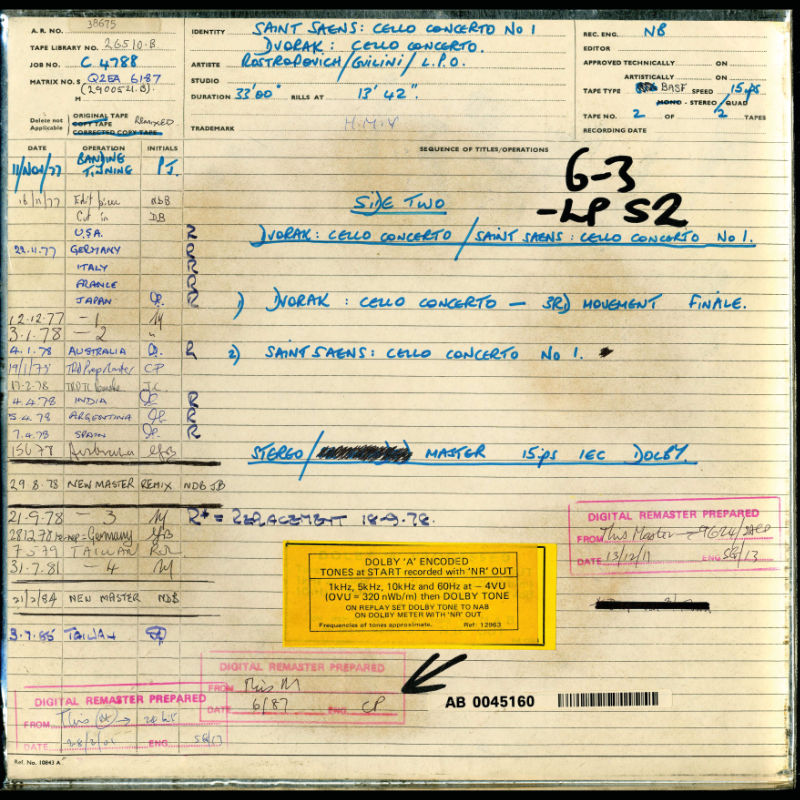 A.R. NO. 38675
TAPE LIBRARY NO. 26510.B
JOB NO. C 4788
MATRIX NO.S Q2EA 6187
(2900521.B)
M
Delete not Applicable
ORIGINAL TAPE
COPY TAPE REMIXED
CORRECTED COPY TAPE
IDENTITY SAINT SAENS: CELLO CONCERTO No 1
DVORAK: CELLO CONCERTO.
ARTISTE ROSTROPOVICH/GUILINI/L.P.O.
STUDIO
DURATION 33'00" BILLS AT 13'42".
TRADEMARK H.M.V
REC. ENG. NB
EDITOR
APPROVED TECHNICALLY ON
ARTISTICALLY ON
TAPE TYPE BASF SPEED 15ips
MONO - STEREO / QUAD
TAPE NO. 2 OF 2 TAPES
RECORDING DATE
DATE OPERATION INITIALS
SEQUENCE OF TITLES/OPERATIONS
11/NOV/77 BANDING TIMING PJ.
6-3
-LP S2
16/11/77 Edit NDB
Cut in DB
SIDE TWO
U.S.A. R
DVORAK: CELLO CONCERTO / SAINT SAENS: CELLO CONCERTO No 1.
22.11.77 GERMANY R
ITALY R
FRANCE R
JAPAN R
1) DVORAK: CELLO CONCERTO — 3RD MOVEMENT FINALE.
12.12.77 -1
3.1.78 -2 "
4.1.78 AUSTRALIA R
2) SAINT SAENS: CELLO CONCERTO No 1.
19/1/78 CP
17.2.78 J.C.
4.4.78 INDIA R
5.4.78 ARGENTINA R
7.4.78 SPAIN R
15678
STEREO/ MASTER 15ips IEC DOLBY.
29.8.78 NEW MASTER REMIX NDB JB
21-9.78 - 3
R* = REPLACEMENT 18-9-78.
281278 Germany
7579 TAIWAN
31.7.81 - 4
21/2/84 NEW MASTER NDB
3.7.85 TAIWAN
DIGITAL REMASTER PREPARED
FROM This Master → 9624/
DATE 13/12/11 ENG SG/13
DOLBY 'A' ENCODED
TONES at START recorded with 'NR' OUT
1kHz, 5kHz, 10kHz and 60Hz at – 4VU
(OVU = 320 nWb/m) then DOLBY TONE
ON REPLAY SET DOLBY TONE TO NAB
ON DOLBY METER WITH 'NR' OUT.
Frequencies of tones approximate. Ref: 12963
DIGITAL REMASTER PREPARED
FROM This M
DATE 6/87 ENG. CP
DIGITAL REMASTER PREPARED
FROM This
DATE ENG.
AB 0045160
Ref. No. 10843 A